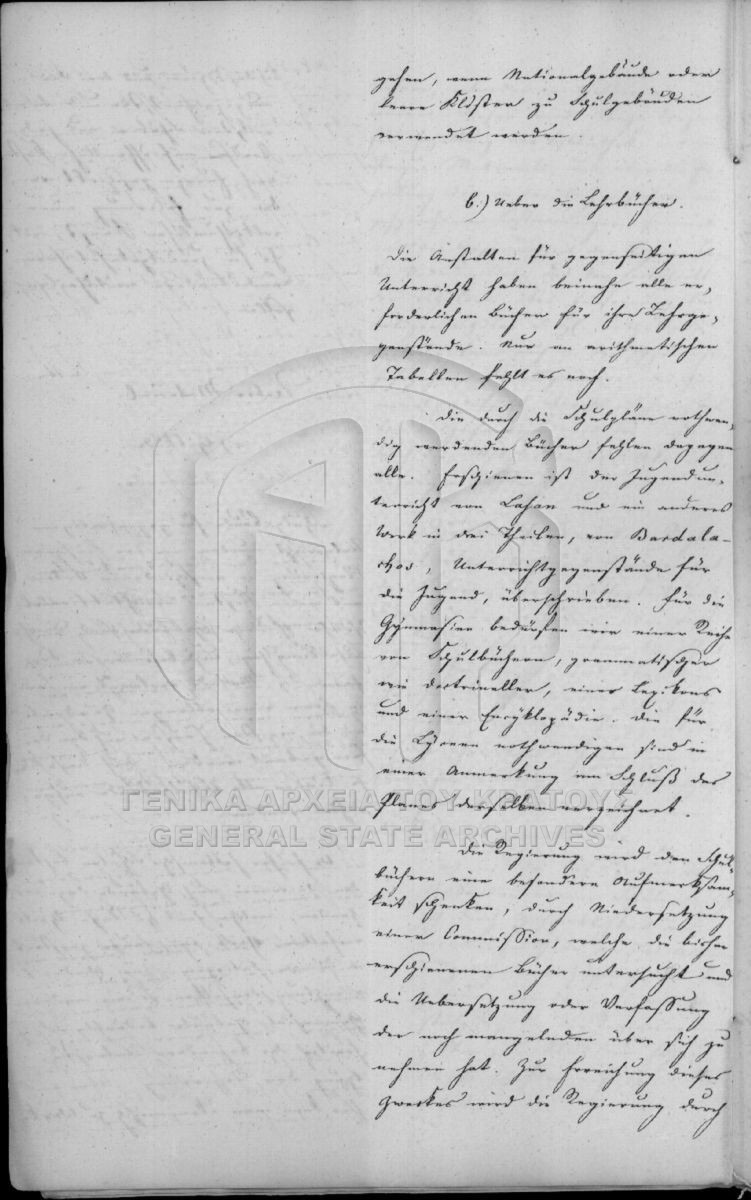 gehen, wenn Nationalgebäude oder
leere Klöster zu Schulgebäuden
verwendet werden.
b.) Ueber die Lehrbücher.
Die Anstalten für gegenseitigen
Unterricht haben beinahe alle er-
forderlichen Bücher für ihre Lehrge-
genstände. Nur an arithmetischen
Tabellen fehlt es noch.
Die durch die Schulpläne nothwen-
dig werdenden Bücher fehlen dagegen
alle. Erschienen ist der Jugendun-
terricht von und ein anderes
Werk in drei Theilen, von Bardala-
chos, Unterrichtgegenstände für
die Jugend, überschrieben. Für die
Gymnasien bedürfen wir einer Reihe
von Schulbüchern, grammatischer
wie doctrineller, eines Lexikons
und einer Encyklopädie. Die für
die Lyceen nothwendigen sind in
einer Anmerkung am Schluß des
Planes derselben verzeichnet.
Die Regierung wird den Schul-
büchern eine besondere Aufmerksam-
keit schenken, durch Niedersetzung
einer Commission, welche die bisher
erschienenen Bücher untersucht und
die Uebersetzung oder Verfassung
der noch mangelnden über sich zu
nehmen hat. Zur Erreichung dieses
Zweckes wird die Regierung durch
ΓΕΝΙΚΑ ΑΡΧΕΙΑ ΤΟΥ ΚΡΑΤΟΥΣ
GENERAL STATE ARCHIVES